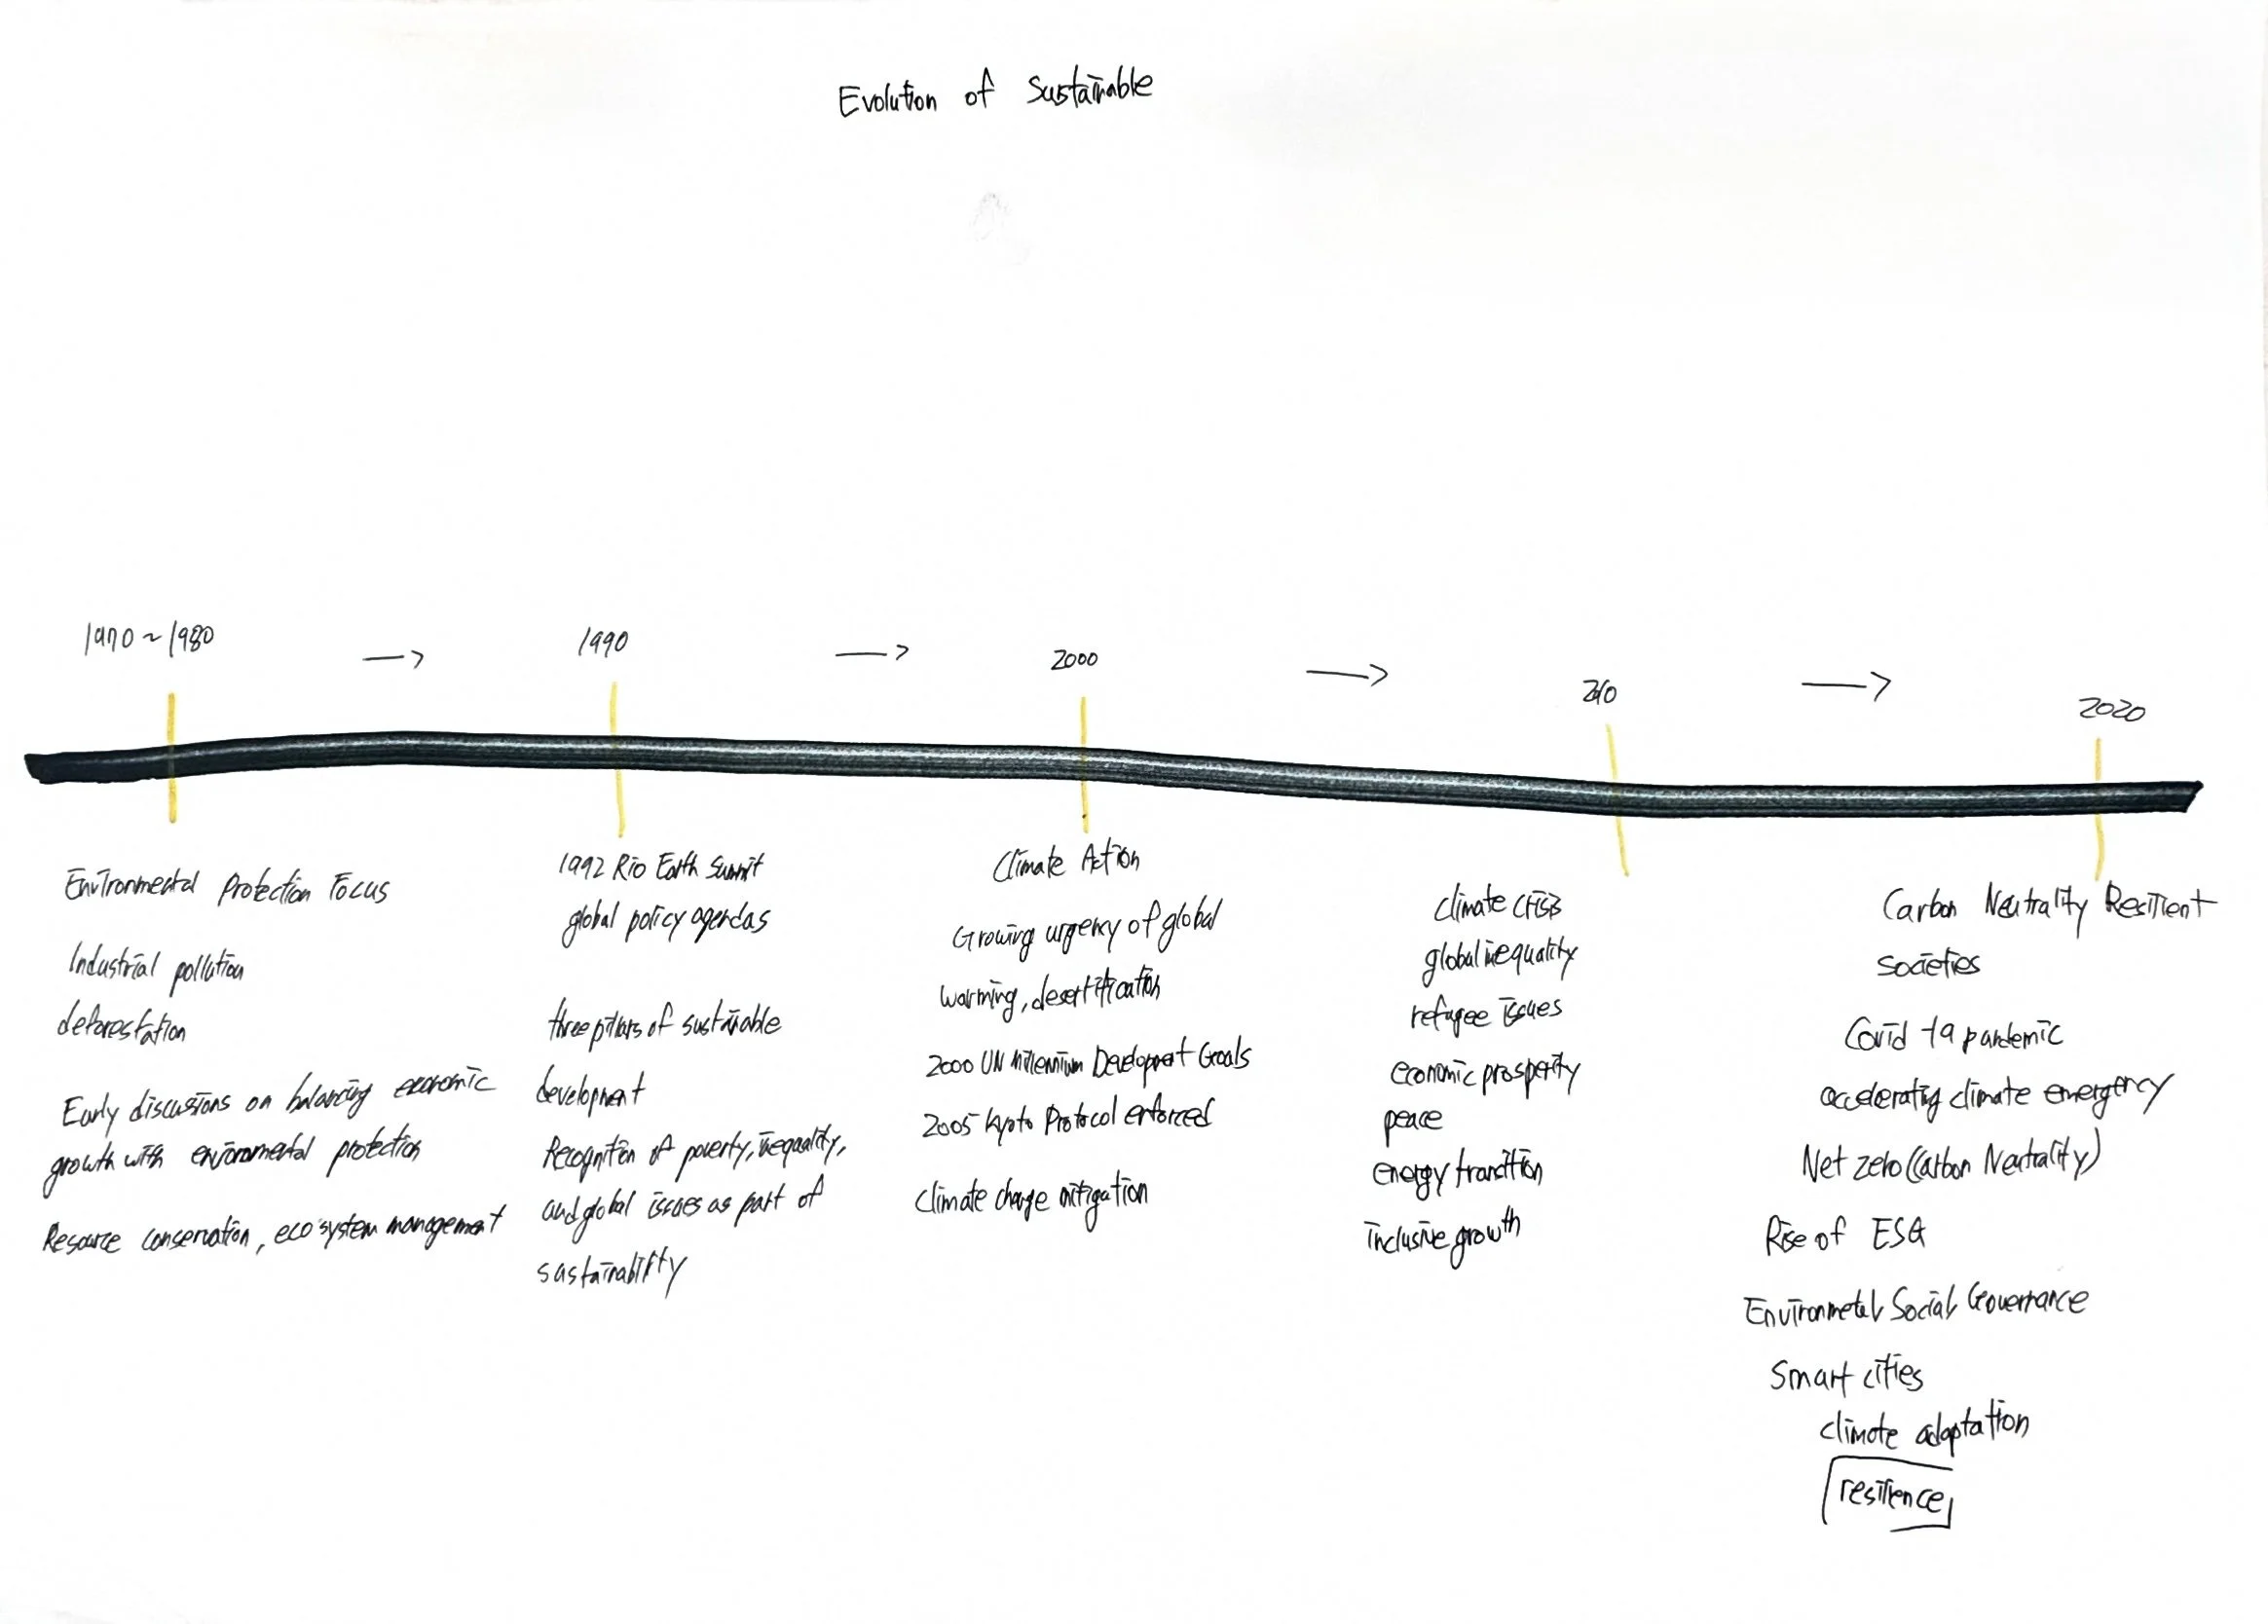 Evolution of Sustainable
1970 ~ 1980
1990
2000
2010
2020
Environmental Protection Focus
Industrial pollution
deforestation
Early discussions on balancing economic
growth with environmental protection
Resource conservation, ecosystem management
1992 Rio Earth Summit
global policy agendas
three pillars of sustainable
development
Recognition of poverty, inequality,
and global issues as part of
sustainability
Climate Action
Growing urgency of global
warming, desertification
2000 UN Millennium Development Goals
2005 Kyoto Protocol enforced
climate change mitigation
climate crisis
global inequality
refugee issues
economic prosperity
peace
energy transition
inclusive growth
Carbon Neutrality Resilient
societies
Covid 19 pandemic
accelerating climate emergency
Net zero (Carbon Neutrality)
Rise of ESG
Environmetal Social Governance
Smart cities
climate adaptation
resilience